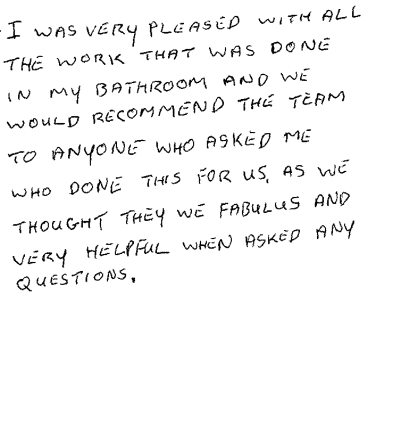 I WAS VERY PLEASED WITH ALL
THE WORK THAT WAS DONE
IN MY BATHROOM AND WE
WOULD RECOMMEND THE TEAM
TO ANYONE WHO ASKED ME
WHO DONE THIS FOR US, AS WE
THOUGHT THEY WE FABULUS AND
VERY HELPFUL WHEN ASKED ANY
QUESTIONS.